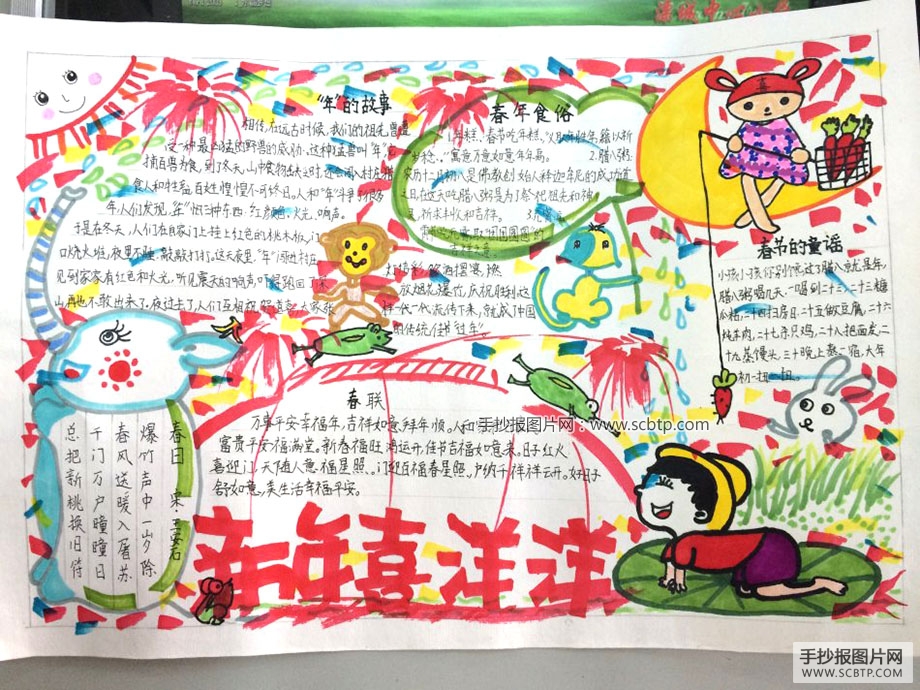 "年"的故事
相传,在远古时候,我们的祖先曾遭
这一种最凶猛的野兽的威胁,这种猛兽叫"年",它
捕百兽为食,到了冬天,山中食物缺乏时,还会闯入村庄猎
食人和牲畜,百姓惶惶不可终日。人和"年"斗争了很多
年,人们发现,"年"怕三种东西:红颜色、火光、响声。
于是在冬天,人们在自家门上挂上红色的桃木板,门
口烧火堆,夜里不睡,敲敲打打。这天夜里,"年"闯进村庄,
见到家家有红色和火光,听见震天的响声,吓得跑回了深
山,再也不敢出来了。夜过去了,人们互相祝贺道喜,大家张
灯结彩,饮酒摆宴,燃
放烟花爆竹,庆祝胜利这
样一代一代流传下来,就成了中国
的传统,佳节"过年"
春年食俗
1.年糕,春节吃年糕,"义取年胜年,籍以祈
岁稔。"寓意万意如意年年高。 2.腊八粥:
农历十二月初八是佛教创始人释迦牟尼的成功道
之日,在这天吃腊八粥是为了祭祀祖先和神
灵,祈求丰收和吉祥。
春节的童谣
小孩小孩你别馋,过了腊八就是年,
腊八粥喝几天,哩哩啦啦二十三,二十三糖
瓜粘,二十四扫房日,二十五做豆腐,二十六
炖羊肉,二十七杀只鸡,二十八把面发,二
十九蒸馒头,三十晚上熬一宿,大年
初一扭一扭。
春联
万事平安幸福年,吉祥如意拜年顺。人和
富贵平安福满堂。新春福旺鸿运开,佳节吉福如意来。日子红火
喜迎门,天随人意福星照。门迎百福春星照,户纳千祥祥云开。好日子
舒如意,美生活幸福平安。
春日 宋·王安石
爆竹声中一岁除
春风送暖入屠苏
千门万户瞳瞳日
总把新桃换旧符
新年喜洋洋
喜
手抄报图片网:www.scbtp.com
手抄报图片网
WWW.SCBTP.COM